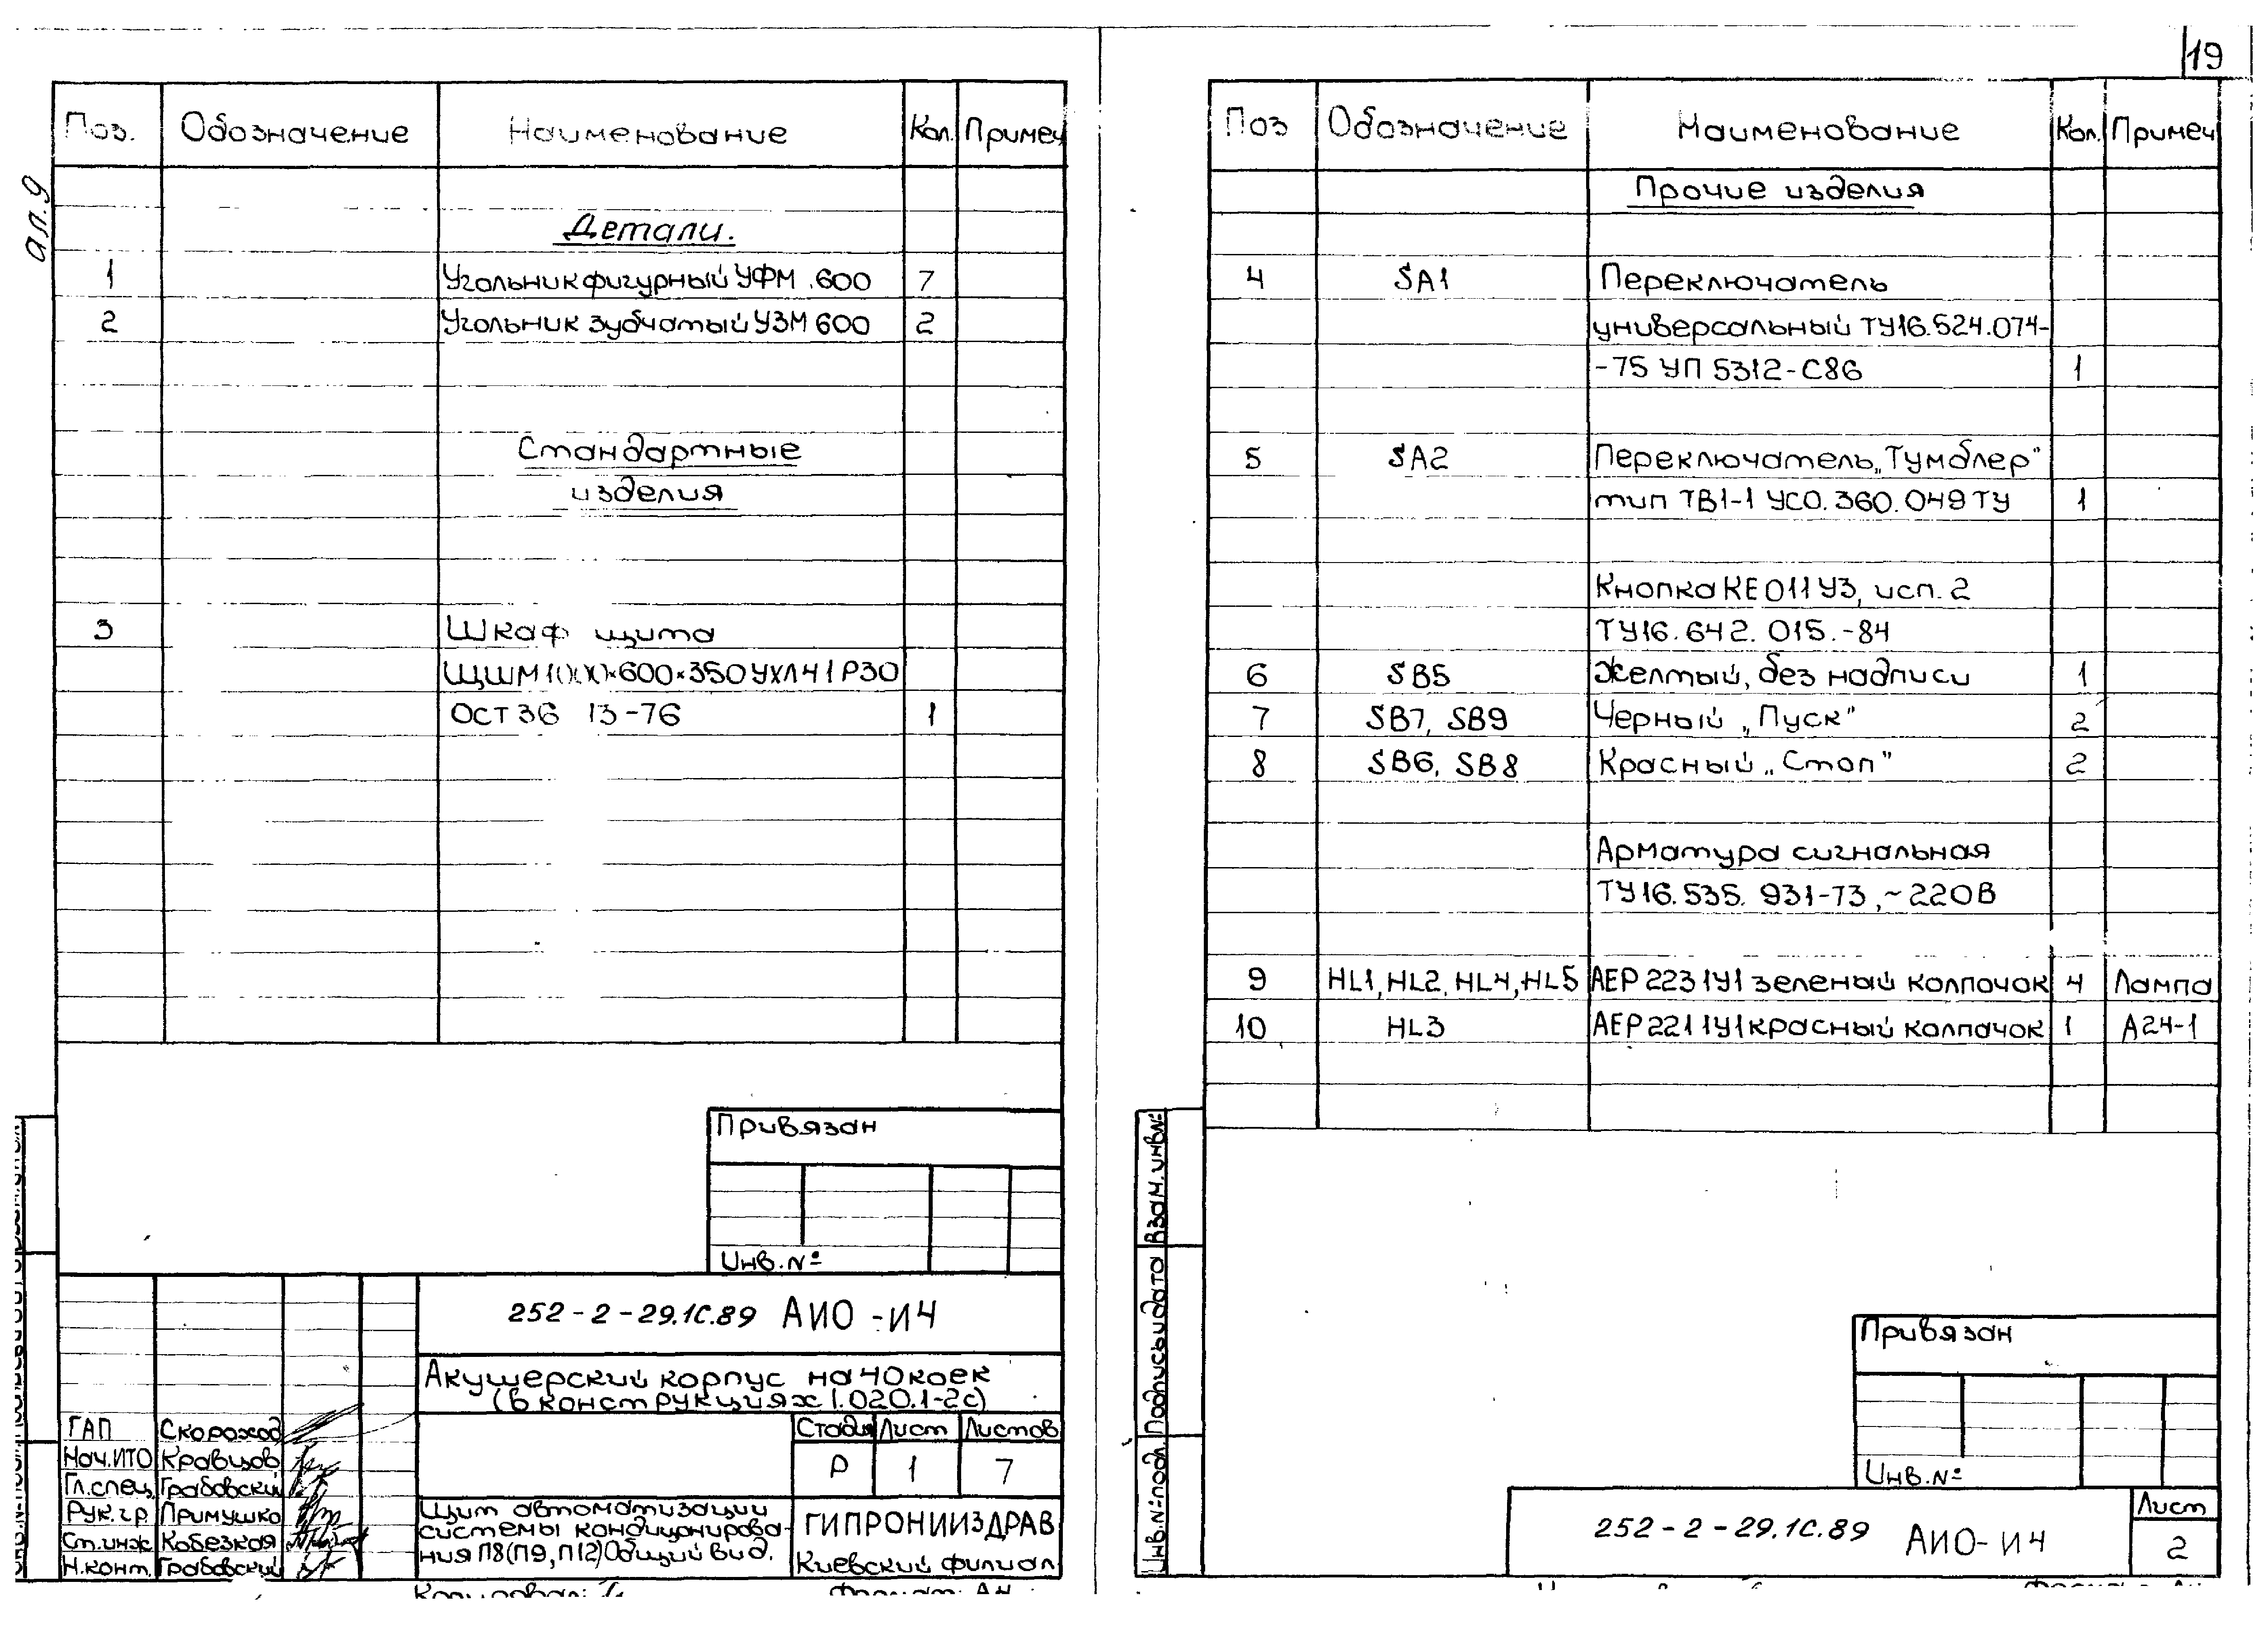 19
ал. 9
Поз. Обозначение Наименование Кол. Примеч
Детали.
1 Угольник фигурный УФМ 600 7
2 Угольник зубчатый УЗМ 600 2
Стандартные
изделия
3 Шкаф щита
ЩШМ 1000×600×350 УХЛ4 1Р30
Ост 36 13-76 1
Привязан
Инв. №
252-2-29.1С.89 АИО-И4
Акушерский корпус на 40 коек
(в конструкциях 1.020.1-2с)
ГАП Скороход
Нач. ИТО Кравцов
Гл. спец. Грабовский
Рук. гр Примушко
Ст. инж Кобезкая
Н. конт. Грабовский
Стадия Лист Листов
Р 1 7
Щит автоматизации
системы кондиционирова-
ния П8 (П9, П12) Общий вид.
ГИПРОНИИЗДРАВ
Киевский филиал
Копировал:
Формат: А4
Поз Обозначение Наименование Кол. Примеч
Прочие изделия
4 SA1 Переключатель
универсальный ТУ16.524.074-
-75 УП 5312-С86 1
5 SA2 Переключатель „Тумблер"
тип ТВ1-1 УСО.360.049 ТУ 1
Кнопка КЕ 011 У3, исп. 2
ТУ16.642.015.-84
6 SB5 Желтый, без надписи 1
7 SB7, SB9 Черный „Пуск" 2
8 SB6, SB8 Красный „Стоп" 2
Арматура сигнальная
ТУ16.535.931-73, ~220В
9 HL1, HL2, HL4, HL5 АЕР 2231У1 зеленый колпочок 4 Лампа
10 HL3 АЕР 2211У1 красный колпачок 1 А24-1
Взам. инв№
Подпись и дата
Инв. № подл.
Привязан
Инв. №
252-2-29.1С.89 АИО-И4
Лист
2